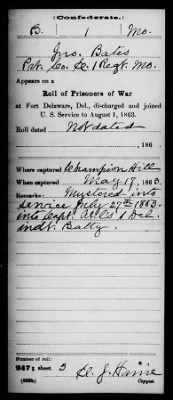 (Confederate.)
B. 1 Mo.
Jno. Bates
Pvt. Co. 1 Regt. Mo.
Appears on a
Roll of Prisoners of War
at Fort Delaware, Del., discharged and joined
U. S. Service to August 1, 1863.
Roll dated Not dated
, 186
Where captured Champion Hill
When captured May 17, 1863.
Remarks: Mustered into
service July 27th 1863
into Capt. Ahl's 1 Del.
indt. Batty.
Number of roll:
247; sheet 3
Copyist.